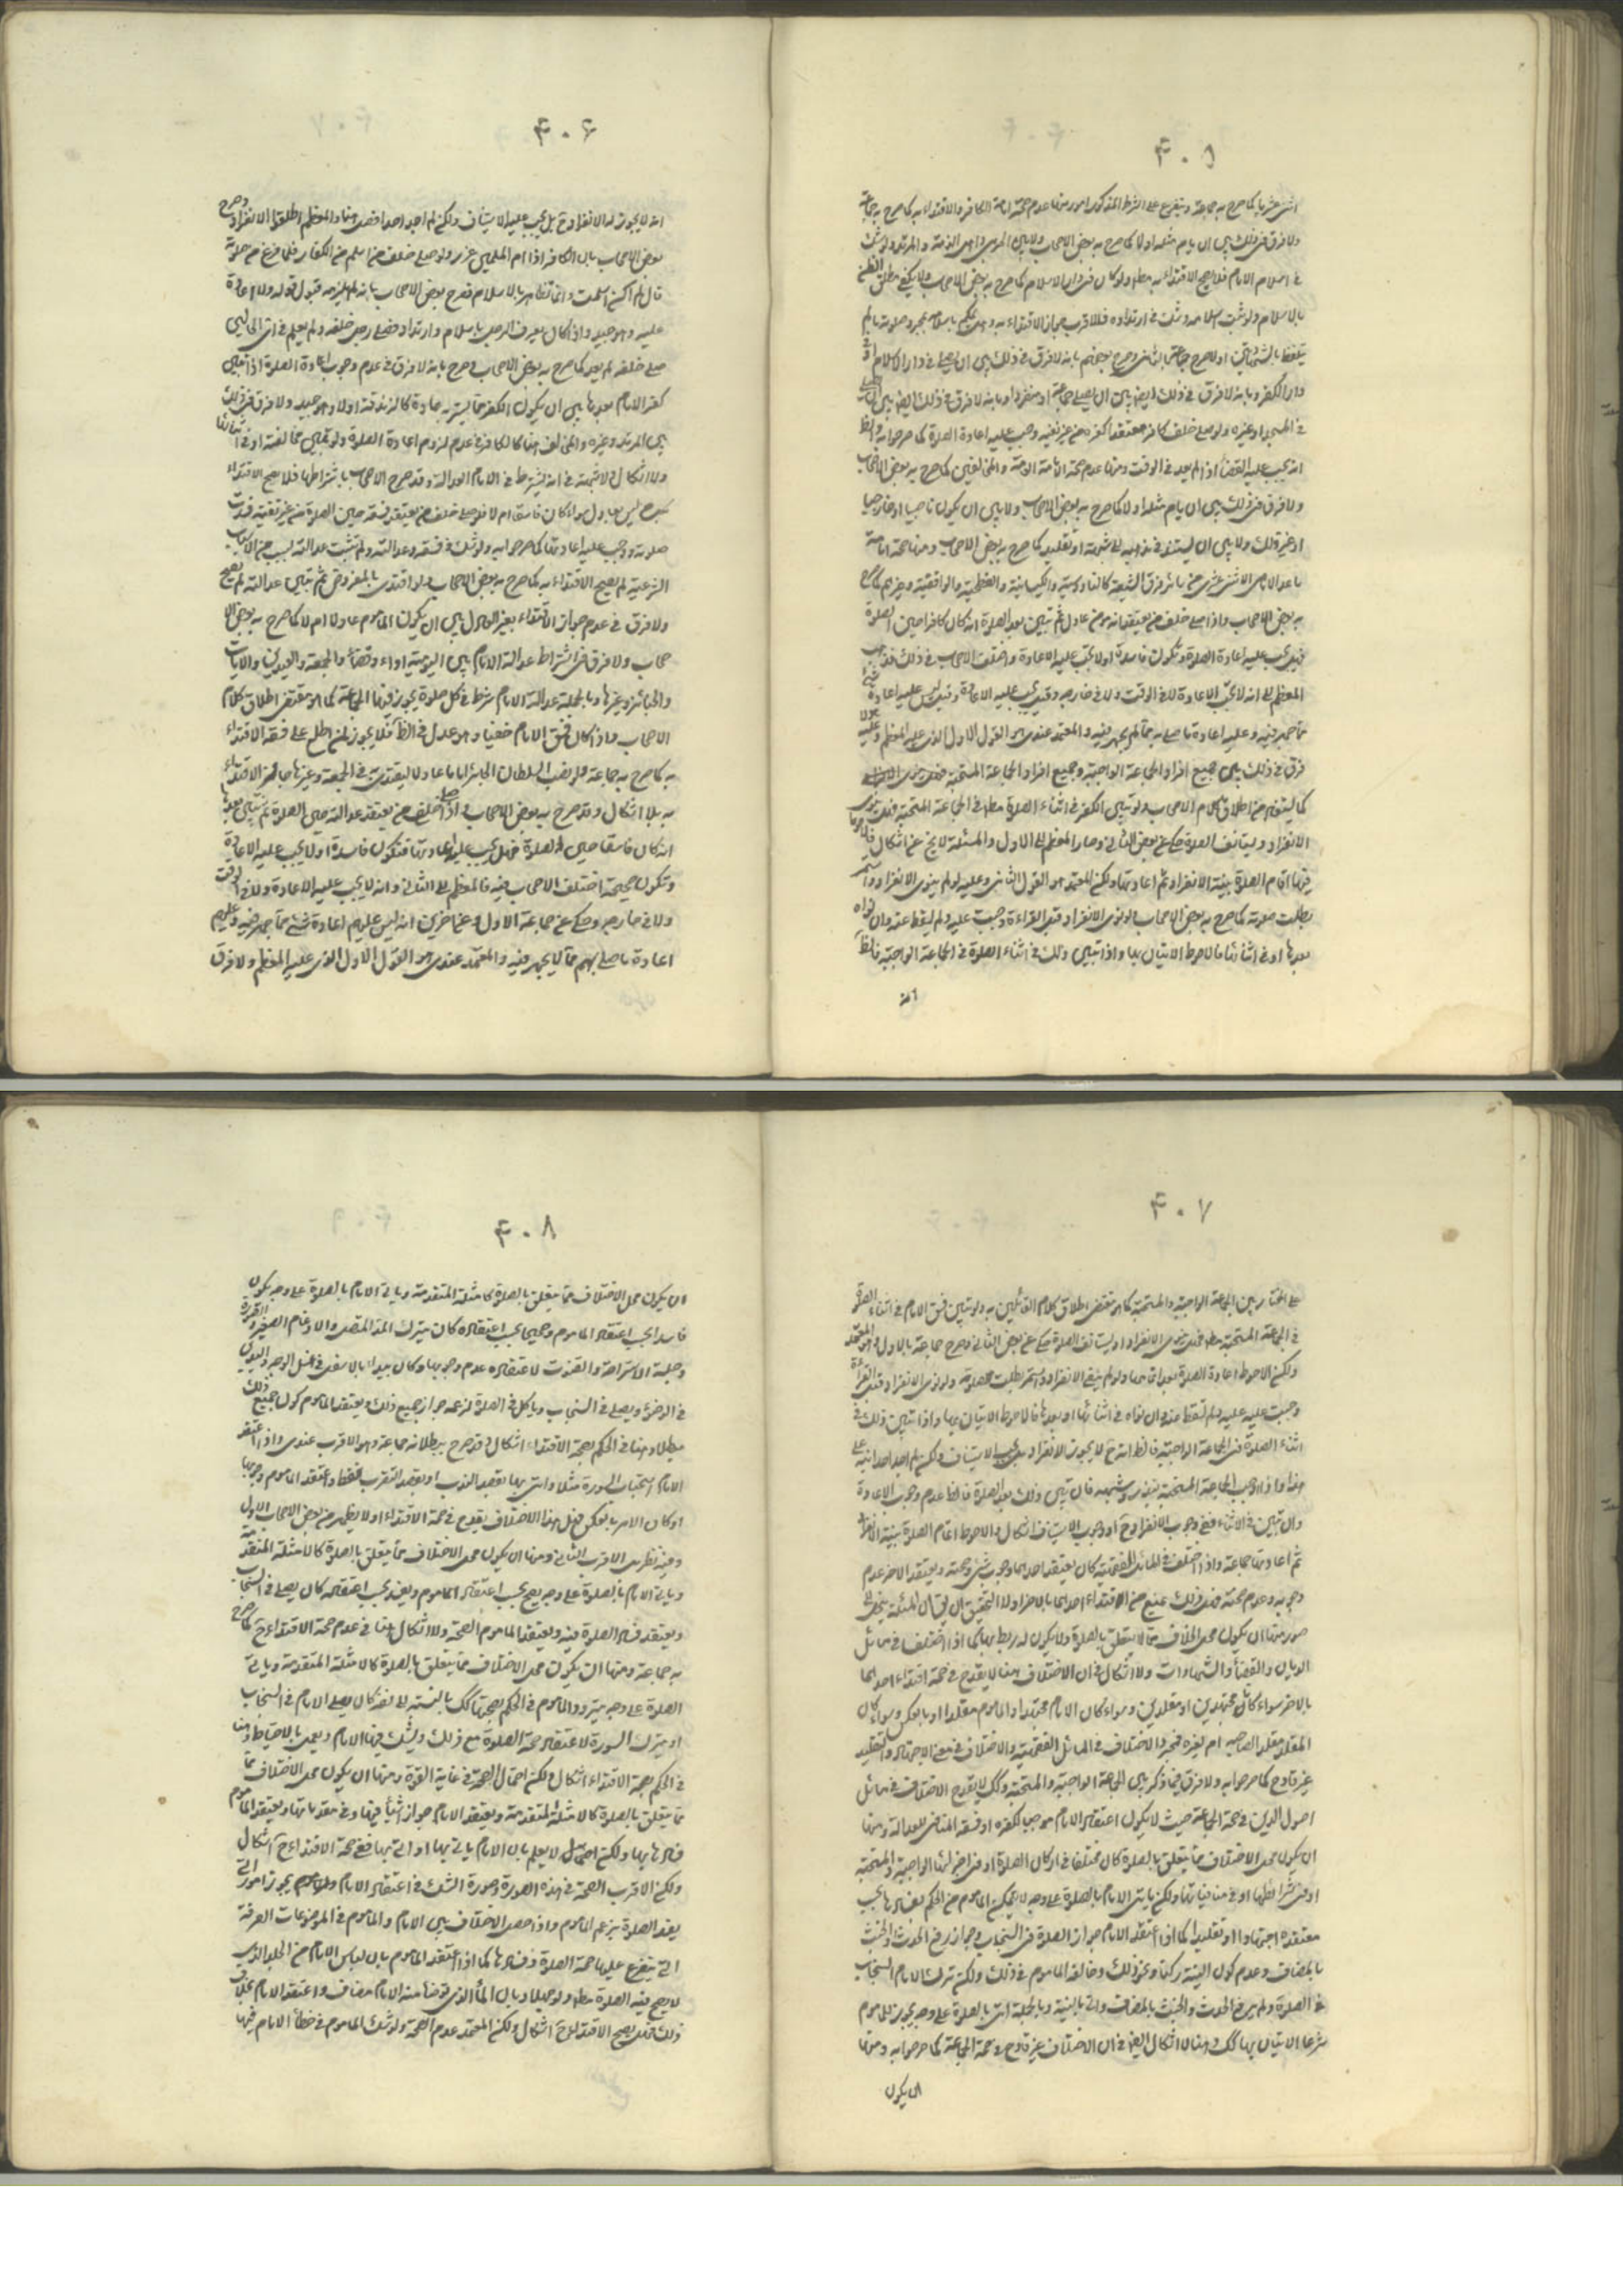 ۴۰۵
اثنى عشريا كما صرح به جماعة ويتفرع على الشرط المذكور امور منها عدم صحة امامة الكافر والاقتداء به كما صرح به جماعة
ولا فرق في ذلك بين ان يام مثله اولا كما صرح به بعض الاصحاب ولا بين الحربى واهل الذمة والمرتد ولو شك
في اسلام الامام فلا يصح الاقتداء به مطلقا ولو كان في دار الاسلام كما صرح به بعض الاصحاب ولا يكفي مطلق الظن
بالاسلام ولو ثبت اسلامه وشك في ارتداده فالاقرب جواز الاقتداء به وهل يحكم باسلامه بمجرد صلوته ما لم
يتلفظ بالشهادتين اولا صرح جماعة بالثانى وصرح بعضهم بانه لا فرق في ذلك بين ان يصلى في دار الاسلام او في
دار الكفر وبانه لا فرق في ذلك ايضا بين ان يصلى جماعة او منفردا وبانه لا فرق في ذلك ايضا بين ان يصلى
في المسجد او غيره ولو صلى خلف كافر معتقدا كفره من غير تقية وجب عليه اعادة الصلوة كما صرحوا به والظ
انه يجب عليه القضاء اذا لم يعد في الوقت ومنها عدم صحة امامة العامة والمخالفين كما صرح به بعض الاصحاب
ولا فرق في ذلك بين ان يام مثله اولا كما صرح به بعض الاصحاب ولا بين ان يكون ناصبيا او خارجيا
او غير ذلك ولا بين ان يستند في مذهبه الى شبهة او تقليد كما صرح به بعض الاصحاب ومنها صحة امامة
ما عدا الامامى الاثنى عشرى من سائر فرق الشيعة كالناووسية والكيسانية والفطحية والواقفية وغيرهم كما صرح
به بعض الاصحاب واذا صلى خلف من يعتقد انه مؤمن عادل ثم تبين بعد الصلوة انه كان كافرا حين الصلوة
فهل يجب عليه اعادة الصلوة وتكون فاسدة اولا يجب عليه الاعادة واختلف الاصحاب في ذلك فذهب
المعظم الى انه لا يجب الاعادة لا في الوقت ولا في خارجه وقيل يجب عليه الاعادة وقيل ليس عليه اعادة
ما جهر فيه وعليه اعادة ما صلى به مما لم يجهر فيه والمعتمد عندى هو القول الاول الذى عليه المعظم وعليه لا
فرق في ذلك بين جميع افراد الجماعة الواجبة وجميع افراد الجماعة المستحبة
كما يستفاد من اطلاق كلام الاصحاب ولو تبين الكفر في اثناء الصلوة مطلقا في الجماعة المستحبة فهل ينوى
الانفراد او يستانف الصلوة حكى عن بعض الثانى وصار المعظم الى الاول والمسئلة لا يخ عن اشكال فالاحوط
فيها اتمام الصلوة بنية الانفراد ثم اعادتها ولكن المعتمد هو القول الثانى وعليه لو لم ينوى الانفراد واستمر
بطلت صلوته كما صرح به بعض الاصحاب ولو نوى الانفراد قبل القراءة وجبت عليه ولم يسقط عنه وان نواه
بعدها او في اثنائها فالاحوط الاتيان بها واذا تبين ذلك في اثناء الصلوة في الجماعة الواجبة فالظ
انه
۴۰۶
انه لا يجوز له الانفراد ح بل يجب عليه الاستيناف ولكن لم اجد احدا افصل هنا والمعظم اطلقوا الانفراد وصرح
بعض الاصحاب بان الكافر اذا ام المسلمين عزر ولو صلى خلف من اسلم من الكفار فلما فرغ من صلوته
قال لم اكن اسلمت وانما تظاهرت بالاسلام فصرح بعض الاصحاب بانه لم يلزمه قبول قوله ولا اعادة
عليه وهو جيد واذا كان يعرف لرجل باسلام وارتداد فصلى رجل خلفه ولم يعلم في اى الحالين
صلى خلفه لم يعد كما صرح به بعض الاصحاب وصرح بانه لا فرق في عدم وجوب اعادة الصلوة اذا تبين
كفر الامام بعدها بين ان يكون الكفر مما يستتر به عادة كالزندقة اولا وهو جيد ولا فرق في ذلك
بين المرتد وغيره والمخالف هنا كالكافر في عدم لزوم اعادة الصلوة ولو تبين مخالفته او في اثنائها
ولا اشكال ولا شبهة في انه يشترط في الامام العدالة وقد صرح الاصحاب باشتراطها فلا يصح الاقتداء
بمن ليس بعادل سواء كان فاسقا ام لا فلو صلى خلف من يعتقد فسقه حين الصلوة من غير تقية فسدت
صلوته ووجب عليه اعادتها كما صرحوا به ولو شك في فسقه وعدالته ولم تثبت عدالته بسبب من الاسباب
الشرعية لم يصح الاقتداء به كما صرح به بعض الاصحاب ولو اقتدى بالمفروض ثم تبين عدالته لم يصح
ولا فرق في عدم جواز الاقتداء بغير العادل بين ان يكون الماموم عادلا ام لا كما صرح به بعض الا
صحاب ولا فرق في اشتراط عدالة الامام بين اليومية اداء وقضاء والجمعة والعيدين والايات
والجنائز وغيرها وبالجملة عدالة الامام شرط في كل صلوة يجوز فيها الجماعة كما هو مقتضى اطلاق كلام
الاصحاب واذا كان فسق الامام خفيا وهو عدل في الظ فلا يجوز لمن اطلع على فسقه الاقتداء
به كما صرح به جماعة ولو نصب السلطان الجائر اماما عادلا ليقتدى به في الجمعة وغيرها جاز الاقتداء
به بلا اشكال وقد صرح به بعض الاصحاب واذا صلى خلف من يعتقد عدالته حين الصلوة ثم تبين بعدها
انه كان فاسقا حين الصلوة فهل يجب عليه اعادتها فتكون فاسدة اولا يجب عليه الاعادة
وتكون صحيحة اختلف الاصحاب فيه فالمعظم الى الثانى وانه لا يجب عليه الاعادة ولا في الوقت
ولا في خارجه وحكى عن جماعة الاول وعن اخرين انه ليس عليهم اعادة شىء مما جهر فيه وعليهم
اعادة ما صلى بهم مما لا يجهر فيه والمعتمد عندى هو القول الاول الذى عليه المعظم ولا فرق
۴۰۷
على المختار بين الجماعة الواجبة والمستحبة كما هو مقتضى اطلاق كلام القائلين به ولو تبين فسق الامام في اثناء الصلوة
في الجماعة المستحبة مطلقا فهل ينوى الانفراد او يستانف الصلوة حكى عن بعض الثانى وصرح جماعة بالاول وهو المعتمد
ولكن الاحوط اعادة الصلوة بعد اتمامها ولو لم ينو الانفراد واستمر بطلت صلوته ولو نوى الانفراد قبل القراءة
وجبت عليه ولم تسقط عنه وان نواه في اثنائها او بعدها فالاحوط الاتيان بها واذا تبين ذلك في
اثناء الصلوة في الجماعة الواجبة فالظ انه ح لا يجوز الانفراد بل يجب الاستيناف ولكن لم اجد احدا نبه على
هذا واذا وجب الجماعة المستحبة بنذر وشبهه فان تبين ذلك بعد الصلوة فالظ عدم وجوب الاعادة
وان تبين في الاثناء ففى وجوب الانفراد ح او وجوب الاستيناف اشكال والاحوط اتمام الصلوة بنية الانفراد
ثم اعادتها جماعة واذا اختلف في المسائل الفقهية كان يعتقد احدهما وجوب شىء وصحته ويعتقد الاخر عدم
وجوبه وعدم صحته فهل ذلك يمنع من الاقتداء احدهما بالاخر اولا التحقيق ان يقال المسئلة ينحل الى
صور منها ان يكون محل الخلاف مما لا يتعلق بالصلوة ولا يكون له ربط بها كما اذا اختلفا في مسائل
الديات والقضاء والشهادات ولا اشكال في ان الاختلاف هنا لا يقدح في صحة اقتداء احدهما
بالاخر سواء كانا مجتهدين او مقلدين وسواء كان الامام مجتهدا والماموم مقلدا او بالعكس وسواء كان
المقلد مقلد الصاحبه ام لغيره فمجرد الاختلاف في المسائل الفقهية والاختلاف في معنى الاجتهاد والتقليد
غير قادح كما صرحوا به ولا فرق فيما ذكر بين الجماعة الواجبة والمستحبة وكك لا يقدح الاختلاف في مسائل
اصول الدين في صحة الجماعة حيث لا يكون اعتقاد الامام موجبا لكفره او فسقه المنافى للعدالة ومنها
ان يكون محل الاختلاف مما يتعلق بالصلوة كان مختلفا في اركان الصلوة او في اجزائها الواجبة والمستحبة
او في شرائطها او في منافياتها ولكن ياتى الامام بالصلوة على وجه لا يتمكن الماموم من الحكم بفسادها بحسب
معتقده اجتهادا او تقليدا كما اذا اعتقد الامام جواز الصلوة في السنجاب وجواز رفع الحدث والخبث
بالمضاف وعدم كون النية ركنا ونحو ذلك وخالفه الماموم في ذلك ولكن ترك الامام السنجاب
في الصلوة ولم يرفع الحدث والخبث بالمضاف واتى بالنية وبالجملة اتى بالصلوة على وجه يجوز للماموم
شرعا الاتيان بها كك وهنا لا اشكال ايضا في ان الاختلاف غير قادح في صحة الجماعة كما صرحوا به ومنها
ان يكون
۴۰۸
ان يكون محل الاختلاف مما يتعلق بالصلوة كامثلة المتقدمة وياتى الامام بالصلوة على وجه يكون
فاسدا بحسب اعتقاد الماموم وصحيحا بحسب اعتقاده كان يترك المد المتصل والادغام الصغير والسورة
وجلسة الاستراحة والقنوت لاعتقاده عدم وجوبها وكان يبدء بالاسفل في غسل الوجه واليدين
في الوضوء ويصلى في السنجاب وياكل في الصلوة لزعمه جواز جميع ذلك ويعتقد الماموم كون جميع ذلك
مبطلا وهنا في الحكم بصحة الاقتداء اشكال وقد صرح ببطلانه جماعة وهو الاقرب عندى واذا اعتقد
الامام استحباب السورة مثلا واتى بها بقصد الندب او بقصد التقرب فقط واعتقد الماموم وجوبها
او كان الامر بالعكس فهل هذا الاختلاف يقدح في صحة الاقتداء اولا يظهر من بعض الاصحاب الاول
وفيه نظر بل الاقرب الثانى ومنها ان يكون محل الاختلاف مما يتعلق بالصلوة كالامثلة المتقدمة
وياتى الامام بالصلوة على وجه يصح بحسب اعتقاد الماموم ويفسد بحسب اعتقاده كان يصلى في السنجاب
ويعتقد فساد الصلوة فيه ويعتقد الماموم الصحة ولا اشكال هنا في عدم صحة الاقتداء ح كما صرح
به جماعة ومنها ان يكون محل الاختلاف مما يتعلق بالصلوة كالامثلة المتقدمة وياتى
الصلوة على وجه يتردد الماموم في الحكم بصحتها كك بالنسبة الى نفسه كان يصلى الامام في السنجاب
او يترك السورة لاعتقاده صحة الصلوة مع ذلك ويشك فيها الامام ويعمل بالاحتياط وهنا
في الحكم بصحة الاقتداء اشكال ولكن احتمال الصحة في غاية القوة ومنها ان يكون محل الاختلاف مما
مما يتعلق بالصلوة كالامثلة المتقدمة ويعتقد الامام جواز اشياء فيها وفي مقدماتها ويعتقد الماموم
فسادها بها ولكن لا يعلم بان الامام ياتى بها او اتى بها ففى صحة الاقتداء ح اشكال
ولكن الاقرب الصحة في هذه الصورة وصورة الشك في اعتقاد الامام وللماموم يجوز امورا التى
يفسد الصلوة بزعم الماموم واذا حصل الاختلاف بين الامام والماموم في الموضوعات الصرفة
التى يتفرع عليها صحة الصلوة وفسادها كما اذا اعتقد الماموم بان لباس الامام من الجلد الذى
لا يصح فيه الصلوة مطلقا ولو جهلا وبان الماء الذى توضا منه الامام مضاف واعتقد الامام بخلاف
ذلك فهل يصح الاقتداء ح اشكال ولكن المعتمد عدم الصحة ولو شك الماموم في خطأ الامام فيها